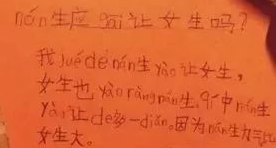 nán生应 gāi 让女生吗？
我 jué dé nán生 yào 让女生，
女生也 yào ràng nán生，中 nán生
yào 让 de 多一 diǎn。因为 nán生力
女生大。